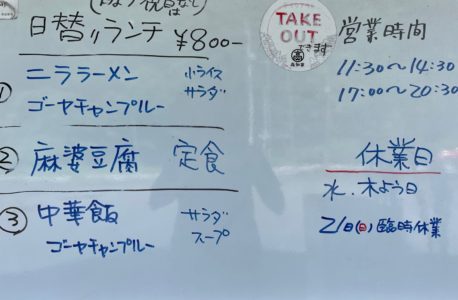 日替リランチ ¥800-
① ニララーメン 小ライス
ゴーヤチャンプルー サラダ
② 麻婆豆腐 定食
③ 中華飯 サラダ
ゴーヤチャンプルー スープ
TAKE
OUT
できます
営業時間
11:30〜14:30
17:00〜20:30
休業日
水、木よう日
21日(日)臨時休業